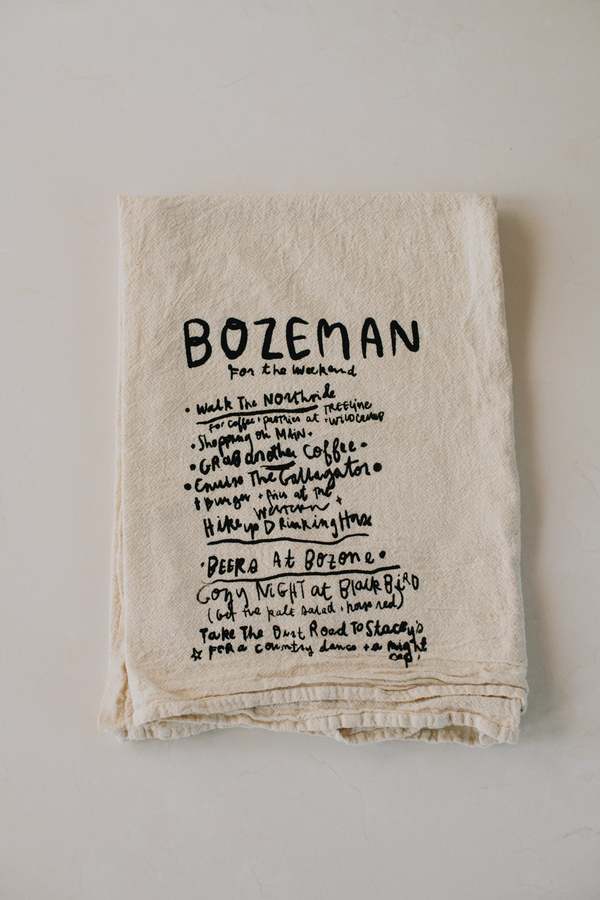 BOZEMAN
For the weekend
• Walk The Northside
For coffee + pastries at TREELINE
• WILDCRUMB
• Shopping on MAIN •
• GRAB another Coffee •
• Cruise The Gallagator •
+ Burger + fries at The
Western +
Hike up Drinking Horse
• BEERS At BOZONE •
Cozy NIGHT at Black BIRD
(Get the kale salad + house red)
Take The Dirt Road To Stacey's
☆ FOR a country dance + a night
cap!